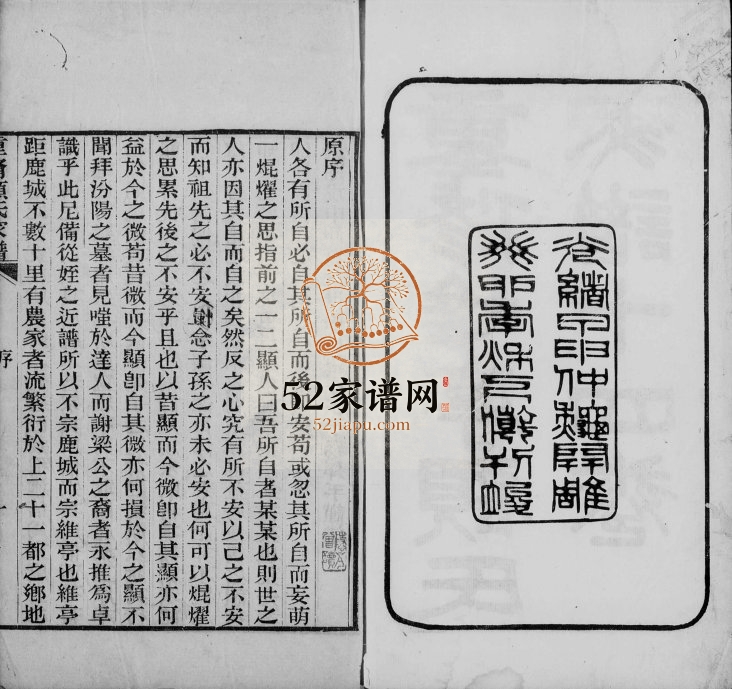 光緒仲開雕
癸卯
原序
人各有所自必自其所自而後安苟或忽其所自而妄萌
一焜燿之思指前之一二顯人曰吾所自者某某也則世之
人亦因其自而自之矣然反之心究有所不安以己之不安
而知祖先之必不安念子孫之亦未必安也何可以焜燿
之思累先後之不安乎且也以昔顯而今微卽自其顯亦何
益於今之微苟昔微而今顯卽自其微亦何損於今之顯不
聞拜汾陽之墓者見嗤於達人而謝梁公之裔者永推爲卓
識乎此尼備從姪之近譜所以不宗鹿城而宗維亭也維亭
距鹿城不數十里有農家者流繁衍於上二十一都之鄉地
顧氏家譜
序
一
52家谱网
52jiapu.com